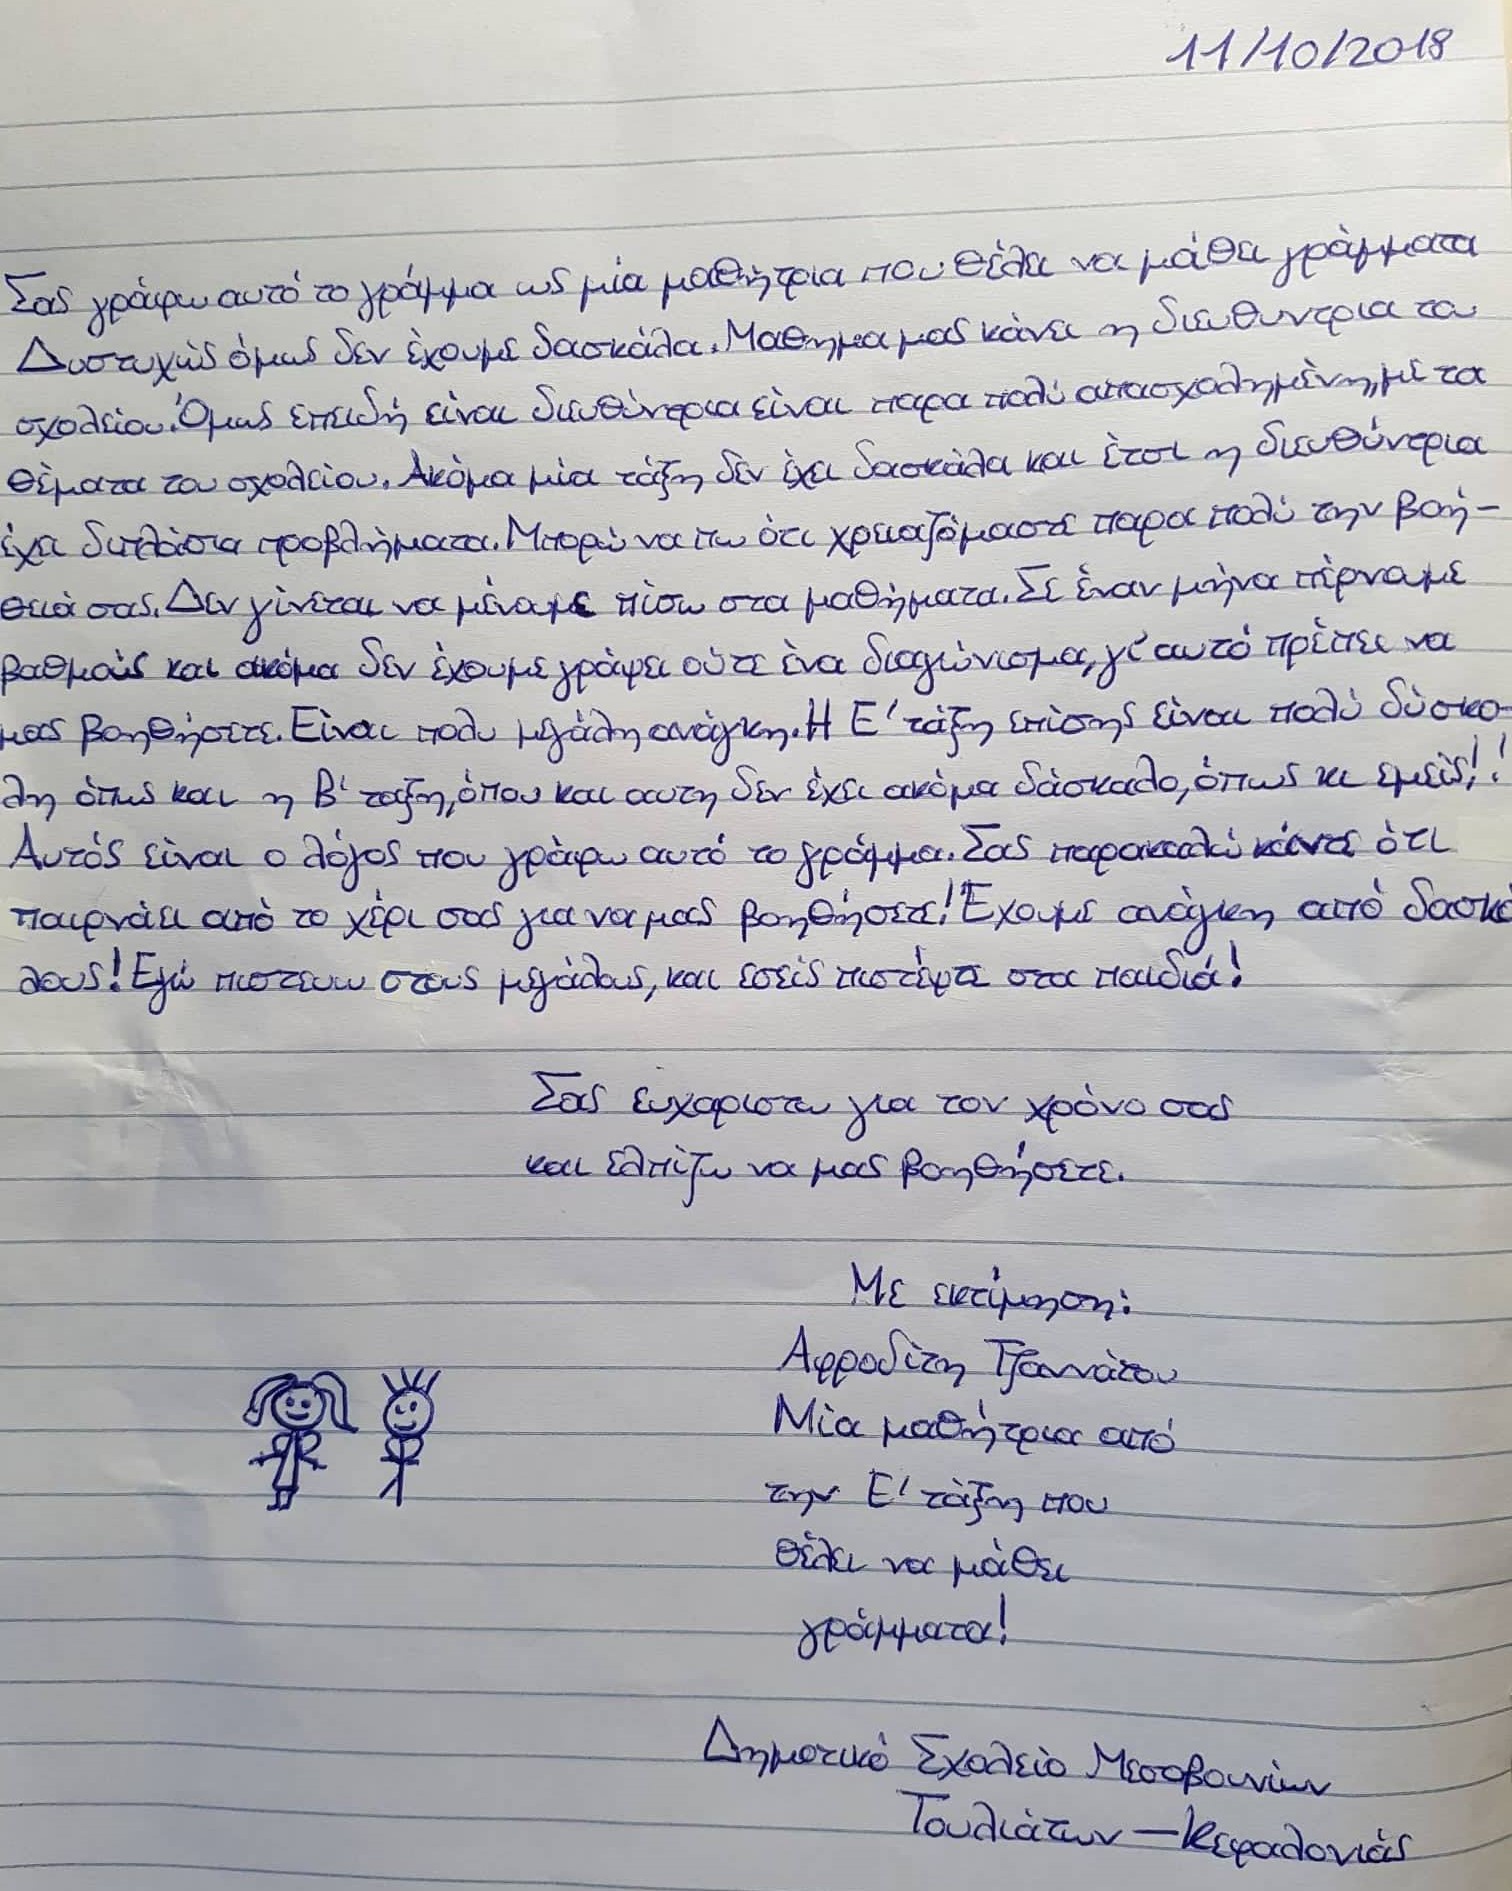 11/10/2018
Σας γράφω αυτό το γράμμα ως μία μαθήτρια που θέλει να μάθει γράμματα
Δυστυχώς όμως δεν έχουμε δασκάλα. Μαθημα μας κάνει η διευθυντρια του
σχολείου. Όμως επειδή είναι διευθύντρια είναι παρα πολύ απασχολημένη, με τα
θέματα του σχολείου. Ακόμα μία τάξη δεν έχει δασκάλα και έτσι η διευθύντρια
έχει διπλάσια προβλήματα. Μπορώ να πω ότι χρειαζόμαστε παρα πολύ την βοή-
θειά σας. Δεν γίνεται να μέναμε πίσω στα μαθήματα. Σε έναν μήνα πέρναμε
βαθμούς και ακόμα δεν έχουμε γράψει ούτε ένα διαγώνισμα, γι' αυτό πρέπει να
μας βοηθήσετε. Είναι πολυ μεγάλη ανάγκη. Η Ε' τάξη επίσης είναι πολύ δύσκο-
λη όπως και η Β' ταξη, όπου και αυτη δεν έχει ακόμα δάσκαλο, όπως κι εμείς!!
Αυτός είναι ο λόγος που γράφω αυτό το γράμμα. Σας παρακαλώ κάντε ότι
παιρνάει από το χέρι σας για να μας βοηθήσετε! Έχουμε ανάγκη από δασκά
λους! Εγώ πιστευω στους μεγάλους, και εσείς πιστέψτε στα παιδιά!
Σας ευχαριστω για τον χρόνο σας
και ελπίζω να μας βοηθήσετε.
Με εκτίμηση:
Αφροδίτη Τζαννάτου
Μία μαθήτρια από
την Ε' τάξη που
θέλει να μάθει
γράμματα!
Δημοτικό Σχολείο Μεσοβουνίων
Τουλιάτων - Κεφαλονιάς